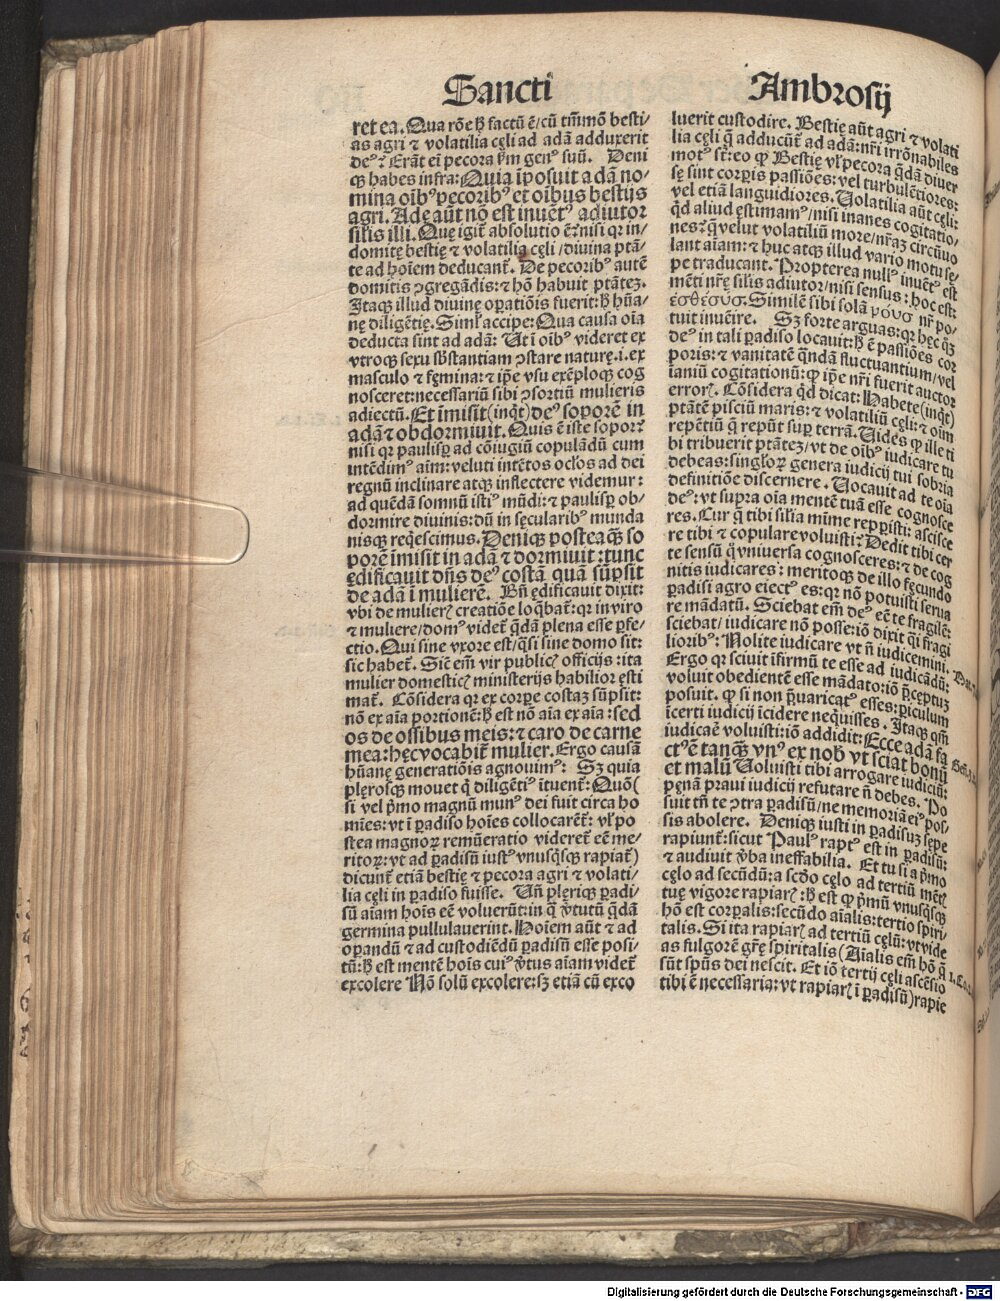 Sancti
Ambrosij
ret ea. Qua rõe hͦ factũ ẽ/cũ tm̃mõ besti-
as agri ⁊ volatilia cęli ad adã adduxerit
deꝰ? Erãt eĩ pecora ẜm genꝰ suũ. Deni
qꝫ habes infra: Quia ĩposuit adã no-
mina oĩbꝰ pecoribꝰ et oĩbus bestijs
agri. Adę aũt nõ est inuẽtꝰ adiutor
silis illi. Quę igit̃ absolutio ẽ? nisi qꝛ in-
domitę bestię ⁊ volatilia cęli/diuina ptã-
te ad hoĩem deducant̃. De pecoribꝰ autẽ
domitis ꝯgregãdis: ⁊ hõ habuit ptãtez.
Itaqꝫ illud diuinę oꝑatiõis fuerit: hͦ hũa-
nę diligẽtię. Siml̃ accipe: Qua causa oĩa
deducta sint ad adã: Ut ĩ oĩbꝰ videret ex
vtroqꝫ sexu sb̃stantiam ꝯstare naturę.i.ex
masculo ⁊ fęmina: ⁊ ip̃e vsu exẽploqꝫ cog
nosceret: necessariũ sibi ꝯsortiũ mulieris
adiectũ. Et ĩmisit (inq̃t) deꝰ soporẽ in
adã ⁊ obdormiuit. Quis ẽ iste sopor?
nisi qꝛ paulisꝑ ad cõiugiũ copulãdũ cum
intẽdimꝰ aĩm: veluti intẽtos ocl̃os ad dei
regnũ inclinare atqꝫ inflectere videmur:
ad quẽdã somnũ istiꝰ mũdi: ⁊ paulisꝑ ob-
dormire diuinis: dũ in sęcularibꝰ munda
nisqꝫ reqͥescimus. Deniqꝫ posteaqꝫ̃ so
porẽ ĩmisit in adã ⁊ dormiuit: tunc
ędificauit dñs deꝰ costã quã sũpsit
de adã ĩ mulierẽ. Bñ ędificauit dixit:
vbi de mulierꝭ creatiõe loqͣbat̃: qꝛ in viro
⁊ muliere/domꝰ videt̃ q̃dã plena esse ꝑfe-
ctio. Qui sine vxore est/qͣsi sine domo sit:
sic habet̃. Sic̃ em̃ vir publicꝭ officijs: ita
mulier domesticꝭ ministerijs habilior ęsti
mat̃. Cõsidera qꝛ ex corꝑe costaz sũpsit:
nõ ex aĩa portionẽ: hͦ est nõ aĩa ex aĩa: sed
os de ossibus meis: ⁊ caro de carne
mea: hęc vocabit̃ mulier. Ergo causã
hũanę generatiõis agnouimꝰ: Sꝫ quia
plęrosqꝫ mouet q̃ diligẽtiꝰ ĩtuent̃: Quõ(
si vel p̃mo magnũ munꝰ dei fuit circa ho
mĩes: vt ĩ ꝑadiso hoĩes collocarẽt̃: vl̃ po
stea magnoꝝ remũeratio videret̃ eẽ me-
ritoꝝ: vt ad ꝑadisũ iustꝰ vnusqͥsqꝫ rapiat̃)
dicunt̃ etiã bestię ⁊ pecora agri ⁊ volati-
lia cęli in ꝑadiso fuisse. Uñ plęriqꝫ ꝑadi-
sũ aĩam hoĩs eẽ voluerũt: in q̃ v̓tutũ q̃dã
germina pullulauerint. Hoĩem aũt ⁊ ad
oꝑandũ ⁊ ad custodiẽdũ ꝑadisũ esse posi-
tũ: hͦ est mentẽ hoĩs cuiꝰ v̓tus aĩam videt̃
excolere Nõ solũ excolere: sꝫ etiã cũ exco
luerit custodire. Bestię aũt agri ⁊ volati
lia cęli q̃ adducũt̃ ad adã: nr̃i irrõnabiles
motꝰ st̃: eo ꝙ Bestię vl̃ pecora q̃dã diuer
sę sint corꝑis passiões: vel turbulẽtiores:
vel etiã languidiores. Uolatilia aũt cęli:
qͥd aliud ęstimamꝰ/nisi inanes cogitatio-
nes? q̃ velut volatiliũ more/nr̃aꝫ circũuo
lant aĩam: ⁊ huc atqꝫ illud vario motu sę-
pe traducant. Propterea nullꝰ inuẽtꝰ est
mẽti nr̃ę silis adiutor/nisi sensus: hoc est:
ἐσθἐσυσ. Similẽ sibi solã ρόυσ nr̃ po-
tuit inuẽire. Sꝫ forte arguas: qꝛ hęc qͦꝫ
deꝰ in tali ꝑadiso locauit: hͦ ẽ passiões cor
poris: ⁊ vanitatẽ q̃ndã fluctuantium/vel
ianiũ cogitationũ: ꝙ ip̃e nr̃i fuerit auctor
errorꝭ. Cõsidera qͥd dicat: Habete (inq̃t)
ptãtẽ pisciũ maris: ⁊ volatiliũ cęli: ⁊ oĩm
repẽtiũ q̃ repũt suꝑ terrã. Uides ꝙ ille ti
bi tribuerit ptãtez/vt de oĩbꝰ iudicare tu
debeas: singl̃oꝝ genera iudicij tui sobria
definitiõe discernere. Uocauit ad te oĩa
deꝰ: vt supra oĩa mentẽ tuã esse cognosce
res. Cur q̃ tibi silia mĩme reꝑꝑisti: ascisce
re tibi ⁊ copulare voluisti? Dedit tibi cer
te sensũ q̃ vniuersa cognosceres: ⁊ de cog
nitis iudicares: meritoqꝫ de illo fęcundo
ꝑadisi agro eiectꝰ es: qꝛ nõ potuisti serua
re mãdatũ. Sciebat em̃ deꝰ eẽ te fragilẽ:
sciebat/iudicare nõ posse: iõ dixit qͣi fragi
lioribꝰ: Nolite iudicare vt ñ iudicemini.
Ergo qꝛ sciuit ĩfirmũ te esse ad iudicãdũ:
voluit obedientẽ esse mãdato: iõ p̃ceptuꝫ
posuit. ꝙ si non p̃uaricatꝰ esses: ꝑiculum
ĩcerti iudicij ĩcidere nequisses. Itaqꝫ qm̃
iudicaẽ voluisti: iõ addidit: Ecce adã fa
ctꝰ ẽ tanqꝫ̃ vnꝰ ex nob̓ vt sciat bonũ
et malũ Uoluisti tibi arrogare iudiciũ:
pęnã praui iudicij refutare ñ debes. Po
suit tñ te ꝯtra ꝑadisũ/ne memoriã eiꝰ pos-
sis abolere. Deniqꝫ iusti in ꝑadisuꝫ sępe
rapiunt̃: sicut Paulꝰ raptꝰ est in ꝑadisũ:
⁊ audiuit v̓ba ineffabilia. Et tu si a p̃mo
cęlo ad secũdũ: a scd̃o cęlo ad tertiũ mẽtꝭ
tuę vigore rapiarꝭ: hͦ est ꝙ p̃mũ vnusqͥsqꝫ
hõ est corꝑalis: secũdo aĩalis: tertio spiri-
talis. Si ita rapiarꝭ ad tertiũ cęlũ: vt vide
as fulgorẽ gr̃ę spiritalis (Aĩalis em̃ hõ q̃
sũt spũs dei nescit. Et iõ tertij cęli ascẽsio
tibi ẽ necessaria: vt rapiarꝭ ĩ ꝑadisũ) rapie
Digitalisierung gefördert durch die Deutsche Forschungsgemeinschaft - DFG